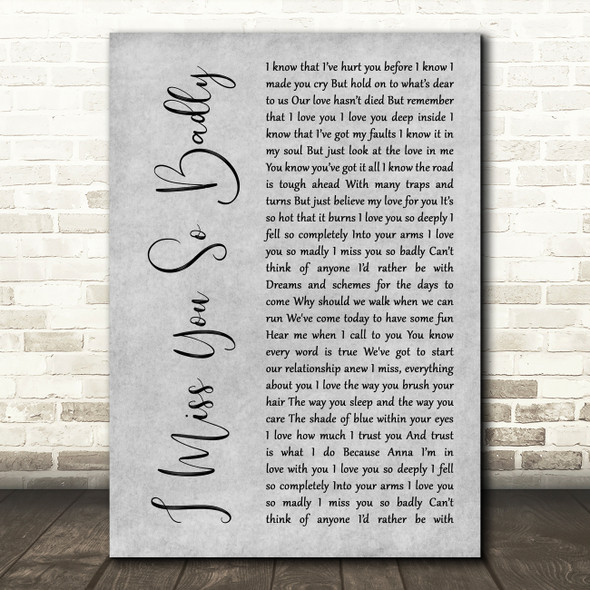 I Miss You So Badly
I know that I've hurt you before I know I
made you cry But hold on to what's dear
to us Our love hasn't died But remember
that I love you I love you deep inside I
know that I've got my faults I know it in
my soul But just look at the love in me
You know you've got it all I know the road
is tough ahead With many traps and
turns But just believe my love for you It's
so hot that it burns I love you so deeply I
fell so completely Into your arms I love
you so madly I miss you so badly Can't
think of anyone I'd rather be with
Dreams and schemes for the days to
come Why should we walk when we can
run We've come today to have some fun
Hear me when I call to you You know
every word is true We've got to start
our relationship anew I miss, everything
about you I love the way you brush your
hair The way you sleep and the way you
care The shade of blue within your eyes
I love how much I trust you And trust
is what I do Because Anna I'm in
love with you I love you so deeply I fell
so completely Into your arms I love you
so madly I miss you so badly Can't
think of anyone I'd rather be with